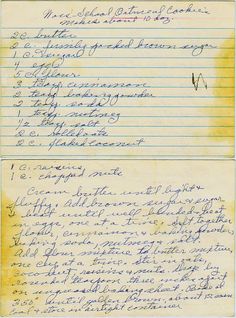 School Oatmeal Cookies
Makes about 10 doz.
2 c. butter
2 c. firmly packed brown sugar
1 c. sugar
4 eggs
5 c. flour
3 teasp. cinnamon
2 teasp. baking powder
2 teasp. soda
teasp. nutmeg
1/2 teasp. salt
2 c. rolled oats
2 c. flaked coconut
1 c. raisins
1 c. chopped nuts
Cream butter until light &
fluffy. Add brown sugar & sugar
& beat until well blended. Beat
in eggs one at a time. Sift together
flour, cinnamon & baking powder,
baking soda, nutmeg & salt.
Add flour mixture to butter mixture
at a time. Stir in oats,
coconut, raisins & nuts. Drop by
rounded teaspoon three inches apart
on ungreased baking sheet. Bake at
350° until golden brown, about
Cool & store in airtight container